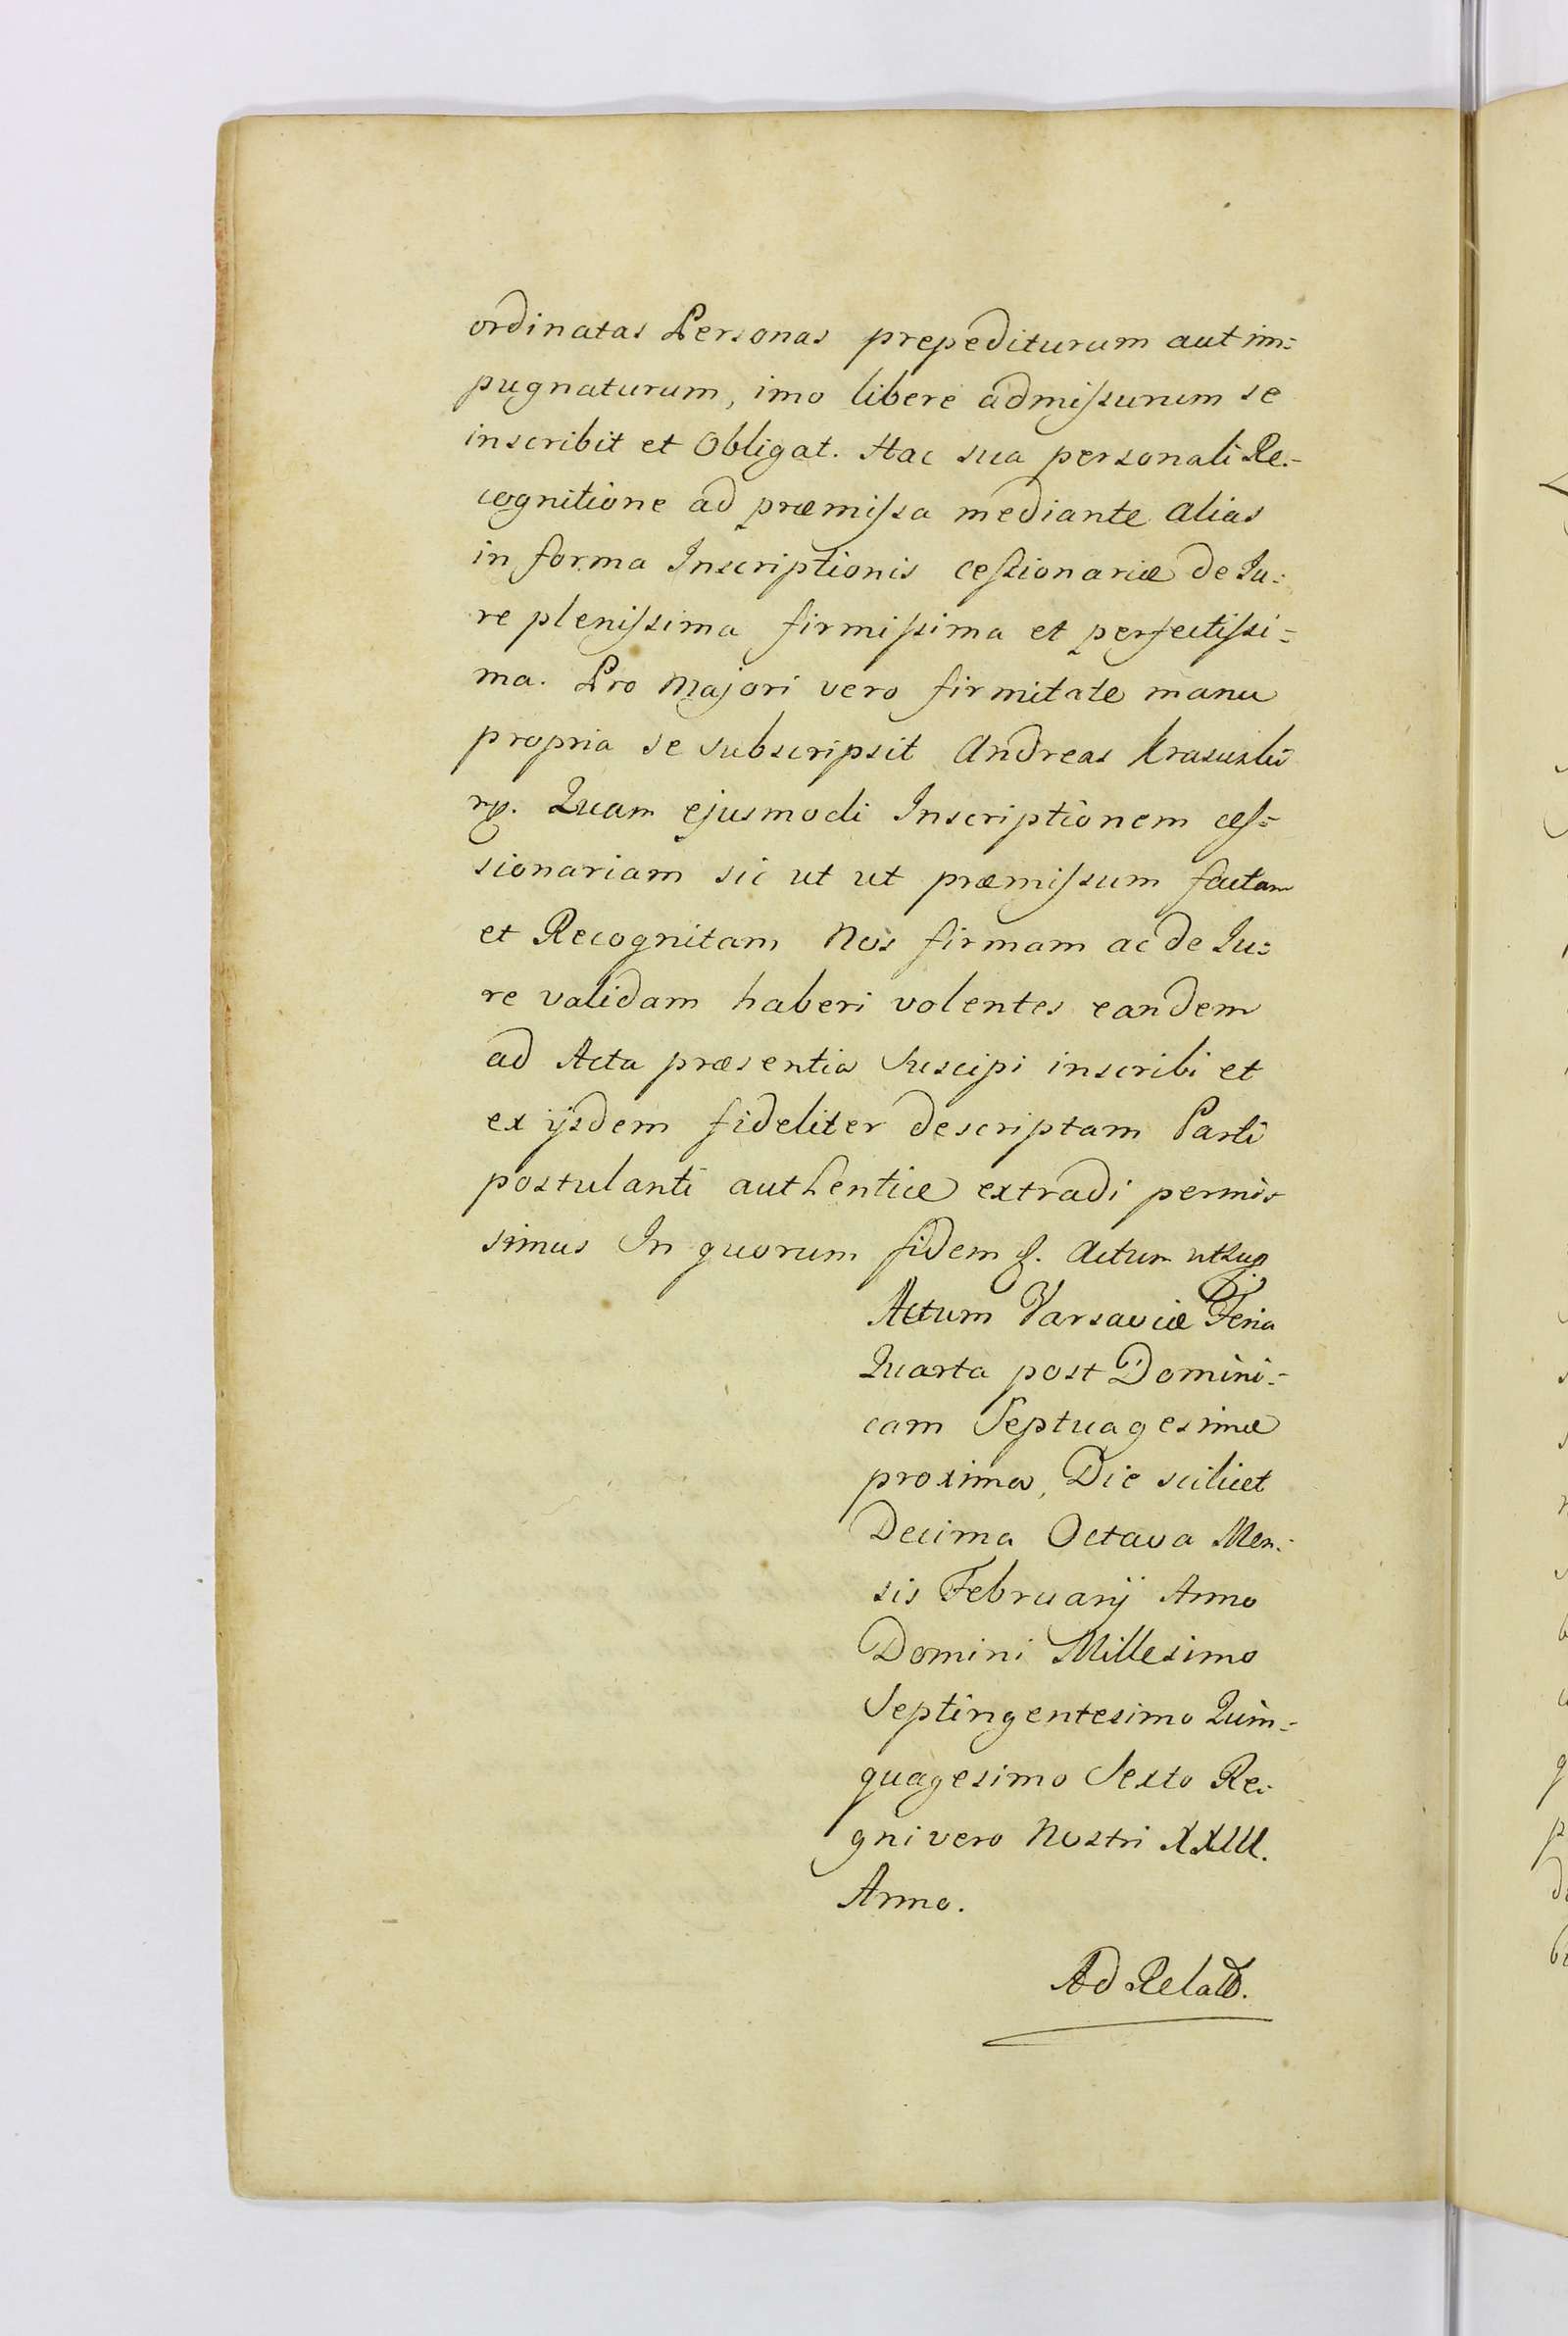 ordinatas Personas prepediturum aut im=
pugnaturum, imo libere admiſsurum se
inscribit et Obligat. Hac sua personali Re=
cognitione ad præmiſsa mediante alias
in forma Inscriptionis ceſsionariæ de Ju=
re pleniſsima firmiſsima et perfectiſsi=
ma. Pro Majori vero firmitate manu
propria se subscripsit Andreas Krasuski
mp. Quam ejusmodi Inscriptionem ceſ=
sionariam sic ut ut præmiſsum factam
et Recognitam Nos firmam ac de Ju=
re validam haberi volentes eandem
ad Acta præsentia Suscipi inscribi et
ex ijsdem fideliter descriptam Parti
postulanti authentice extradi permis
simus In quorum fidem &. Actum ut Sup
Actum Varsaviæ Feria
Quarta post Domini=
cam Septuagesimæ
proxima, Die scilicet
Decima Octava Men=
sis Februarij Anno
Domini Millesimo
Septingentesimo Quin=
quagesimo Sexto Re=
gni vero Nostri XXIII.
Anno.
Ad Relat.